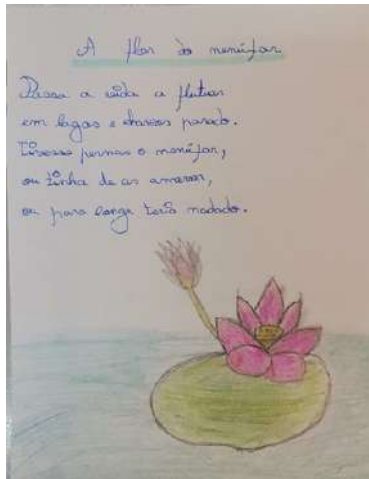 A flor do nenúfar
Passa a vida a flutuar
em lagos e charcos parado.
Tivesse pernas o nenúfar,
ou tinha de as amarrar,
ou para longe teria nadado.